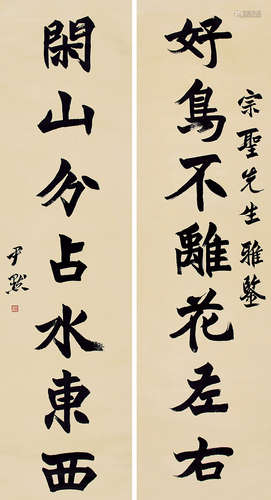 宗聖先生雅鑒
好鳥不離花左右
閑山分占水東西
尹默